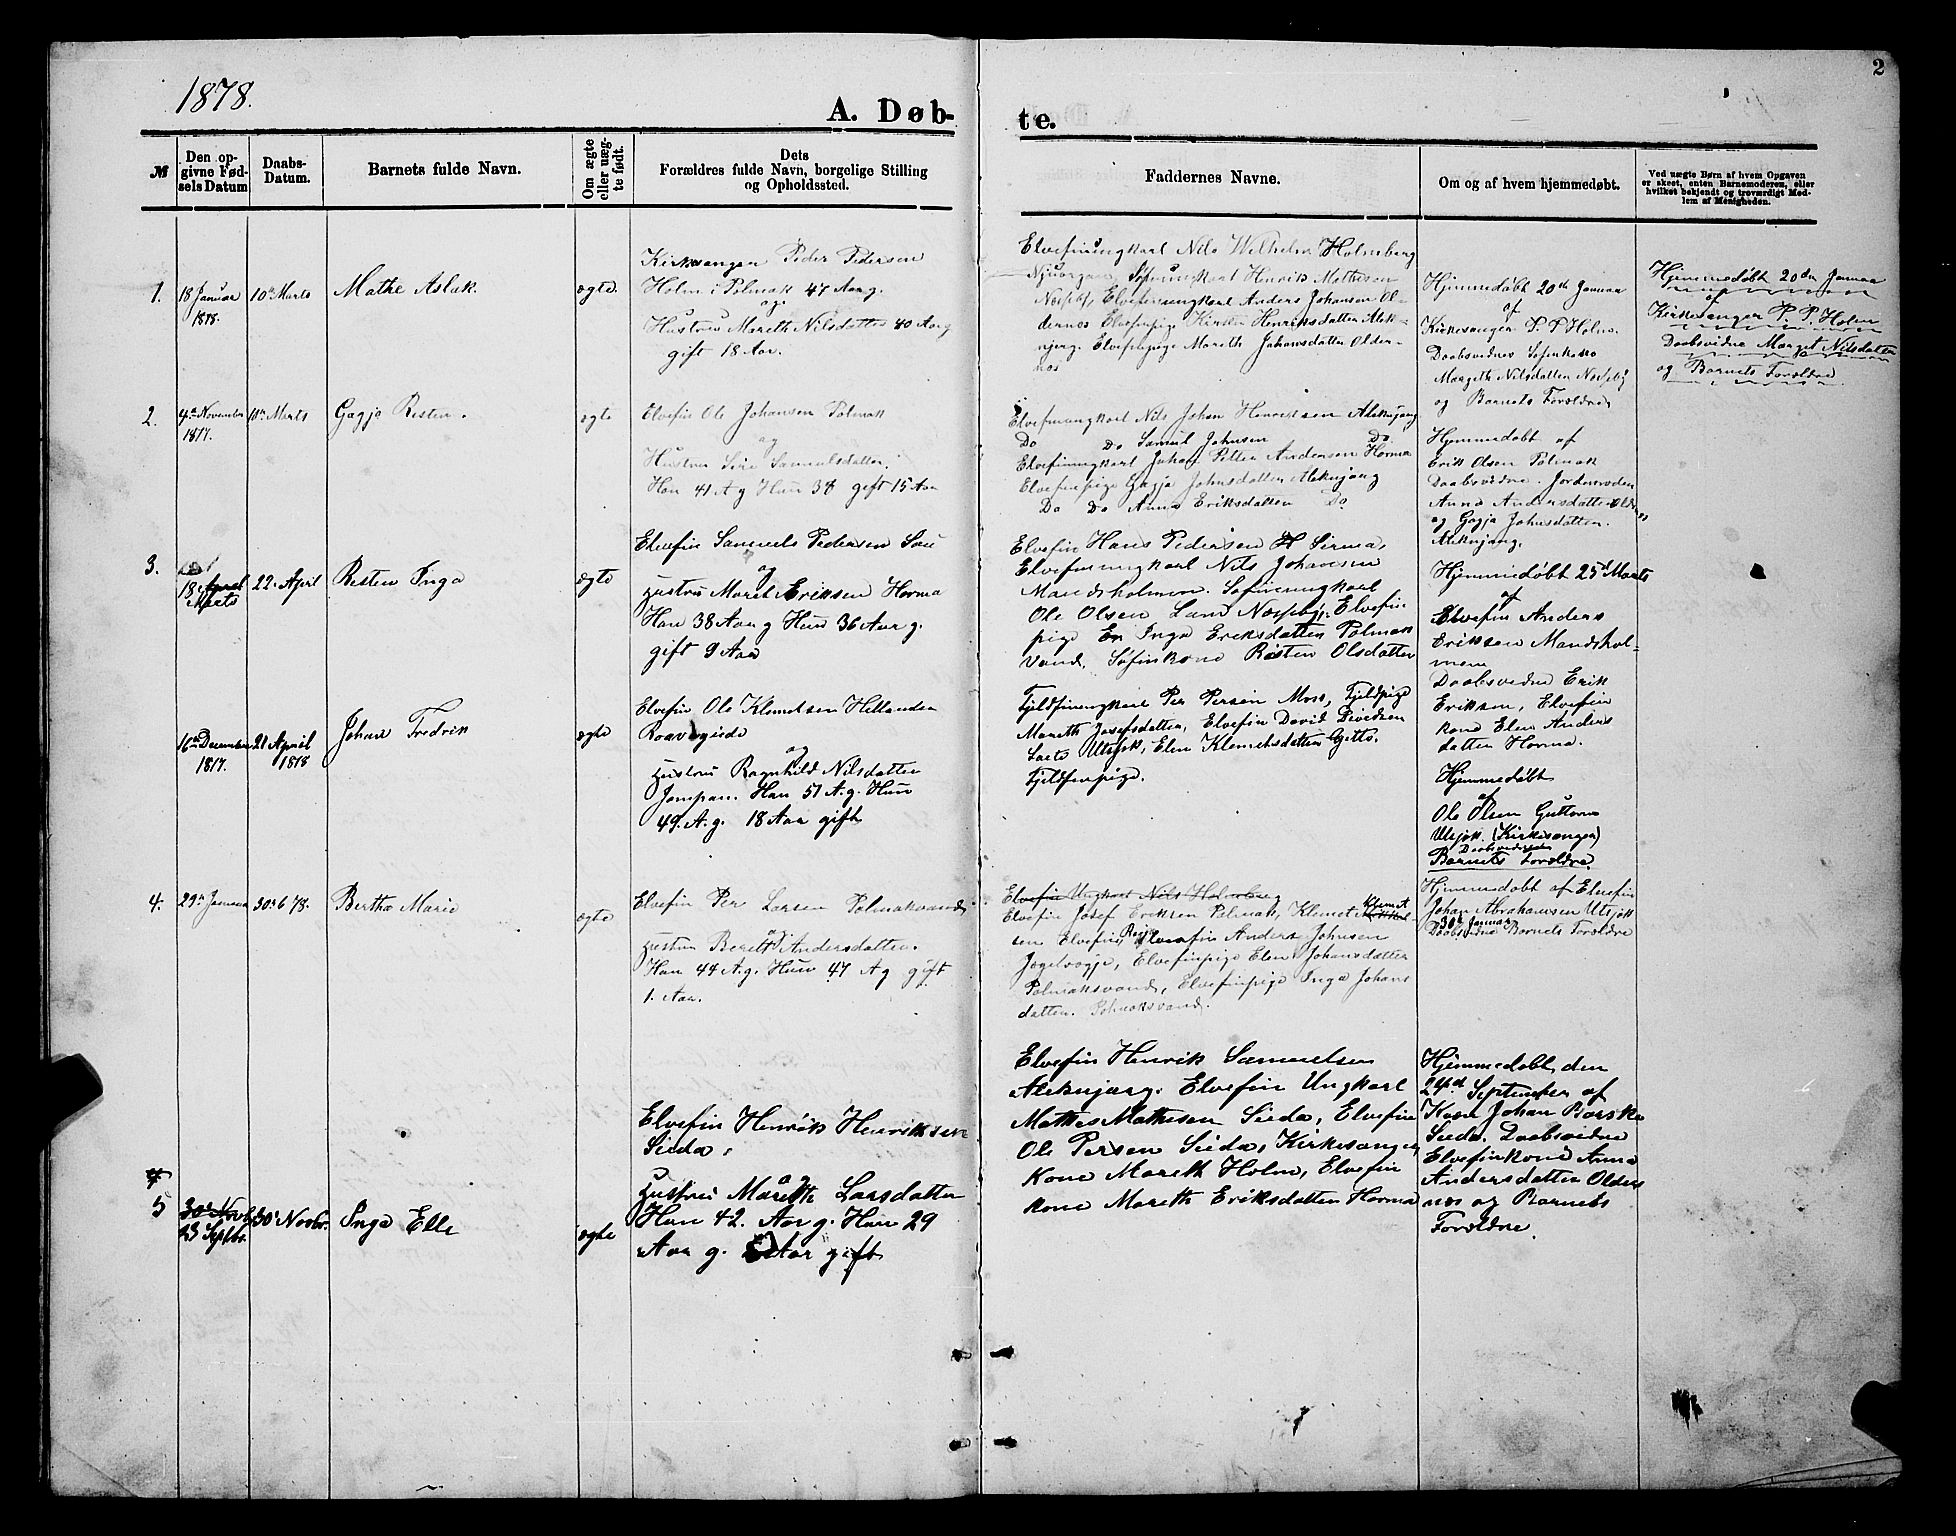 2
1878.
A. Døb-
te.
№
Den op-
givne Fød-
sels Datum
Daabs-
Datum.
Barnets fulde Navn.
Om ægte
eller uæg-
te født.
Dets
Forældres fulde Navn, borgelige Stilling
og Opholdssted.
Faddernes Navne.
Om og af hvem hjemmedøbt.
Ved uægte Børn af hvem Opgaven
er skeet, enten Barnemoderen, eller
hvilket bekjendt og troværdigt Med-
lem af Menigheden.
1.
18 Januar
1878.
10de Marts
Mathe Aslak
ægte
Kirkesanger Peder Pedersen
Holm i Polmak 47 Aar g.
og
Hustru Mareth Nilsdatter 40 Aar g
gift 18 Aar.
Elvefinungkarl Nils Wilhelm Holmberg
Njuorgam, Søfinungkarl Henrik Mathesen
Næseby, Elvefinungkarl Anders Johansen Ol-
dernes Elvefinpige Kirsten Henriksdatter Alek-
njarg. Elvefinpige Mareth Johansdatter Older-
nes
Hjemmedøbt 20de Januar
af
Kirkesanger P. P. Holm.
Daabsvidner Søfinkone
Margeth Nilsdatter Næseby
og Barnets Forældre
Hjemmedøbt 20de Januar
af
Kirkesanger P. P. Holm
Daabsvidne Marget Nilsdatter
og Barnets Forældre
2.
4de November
1877.
10de Marts
Gagja Risten.
ægte
Elvefin Ole Johansen Polmak
og
Hustru Sire Samuelsdatter.
Han 41 A g Hun 38 gift 15 Aar
Elvefinungkarl Nils Johan Henriksen Aleknjarg
Do Do Samuel Johnsen Do
Elvefinungkarl Johan Petter Andersen Horma
Elvefinpige Gagja Johnsdatter Aleknjarg
Do Do Anna Eriksdatter Do
Hjemmedøbt af
Erik Olsen Polmak
Daabsvidne Jordemoder
Anna Andersdatter Oldernes
og Gagja Johnsdatter.
Aleknjarg.
3.
18 April
Marts
22 April
Risten Inga
ægte
Elvefin Samuels Pedersen
og
Hustru Maret Eriksen Horma
Han 38 Aar g Hun 36 Aar g.
gift 9 Aar
Elvefin Hans Pedersen H Sirma,
Elvefinungkarl Nils Johansen
Mandsholmen. Søfinungkarl
Ole Olsen Næseby, Elvefin
pige Er Inga Eriksdatter Polmak
vand. Søfinkone Risten Olsdatter
Hjemmedøbt 25d Marts
af
Elvefin Anders
Eriksen Mandshol-
mene
Daabsvidne Erik
Eriksen, Elvefin
kone Elen Anders
datter Horma.
16de December
1877.
21 April
1878
Johan Fredrik
ægte
Elvefin Ole Klemetsen Hellander
og
Hustru Ragnhild Nilsdatter
Han 51 A. g. Hun
49. A. g. 18 Aar gift
Fjeldfinungkarl Per Persen Moss, Fjeldpige
Mareth Josefsdatter, Elvefin David Pividsen
Utsjok, Elen Klemetsdatter
Fjeldfinpige.
Hjemmedøbt
af
Ole Olsen Guttorm
Utsjok. (Kirkesanger)
Daabsvidner
Barnets Forældre
4.
29de Januar
30 6 78.
Bertha Marie
ægte
Elvefin Per Larsen Polmakvand
og
Hustru Bereth Andersdatter.
Han 44 A.g. Hun 47 A g gift
1. Aar.
Elvefin Ungkarl Nils Holmberg
Elvefin Josef Eriksen Polmak, Klemet Klemet
sen Elvefin, Elvefin Anders Johnsen
Elvefinpige Elen Johansdatter
Polmaksvand, Elvefinpige Inga Johans
datter. Polmaksvand.
Hjemmedøbt af Elvefin
Johan Abrahamsen Utsjok
30de Januar
Daabsvidne Barnets Forældre
4
5
30de Novb
23 Septbr.
30 Novbr.
Inga Elle
ægte
Elvefin Henrik Henriksen
Sieda,
og
Hustru Mareth Larsdatter
Han 42. Aar g. Hun 29
Aar g. Aar gift
Elvefin Henrik Samuelsen
Aleknjarg. Elvefin Ungkarl
Mathis Mathisen Sieda, Elvefin
Ole Persen Sieda, Kirkesanger
kone Mareth Holm, Elvefin
kone Mareth Eriksdatter Horma
Hjemmedøbt den
24d September af
Kone Johan Barska
Sieda. Daabsvidne
Elvefinkone Anna
Andersdatter Older
nes og Barnets
Forældre.